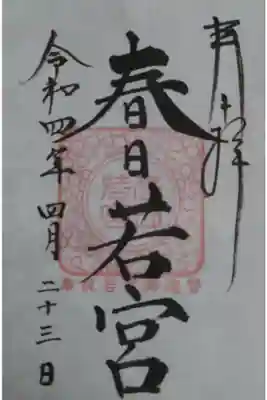 奉拝
春日若宮
令和四年四月二十三日